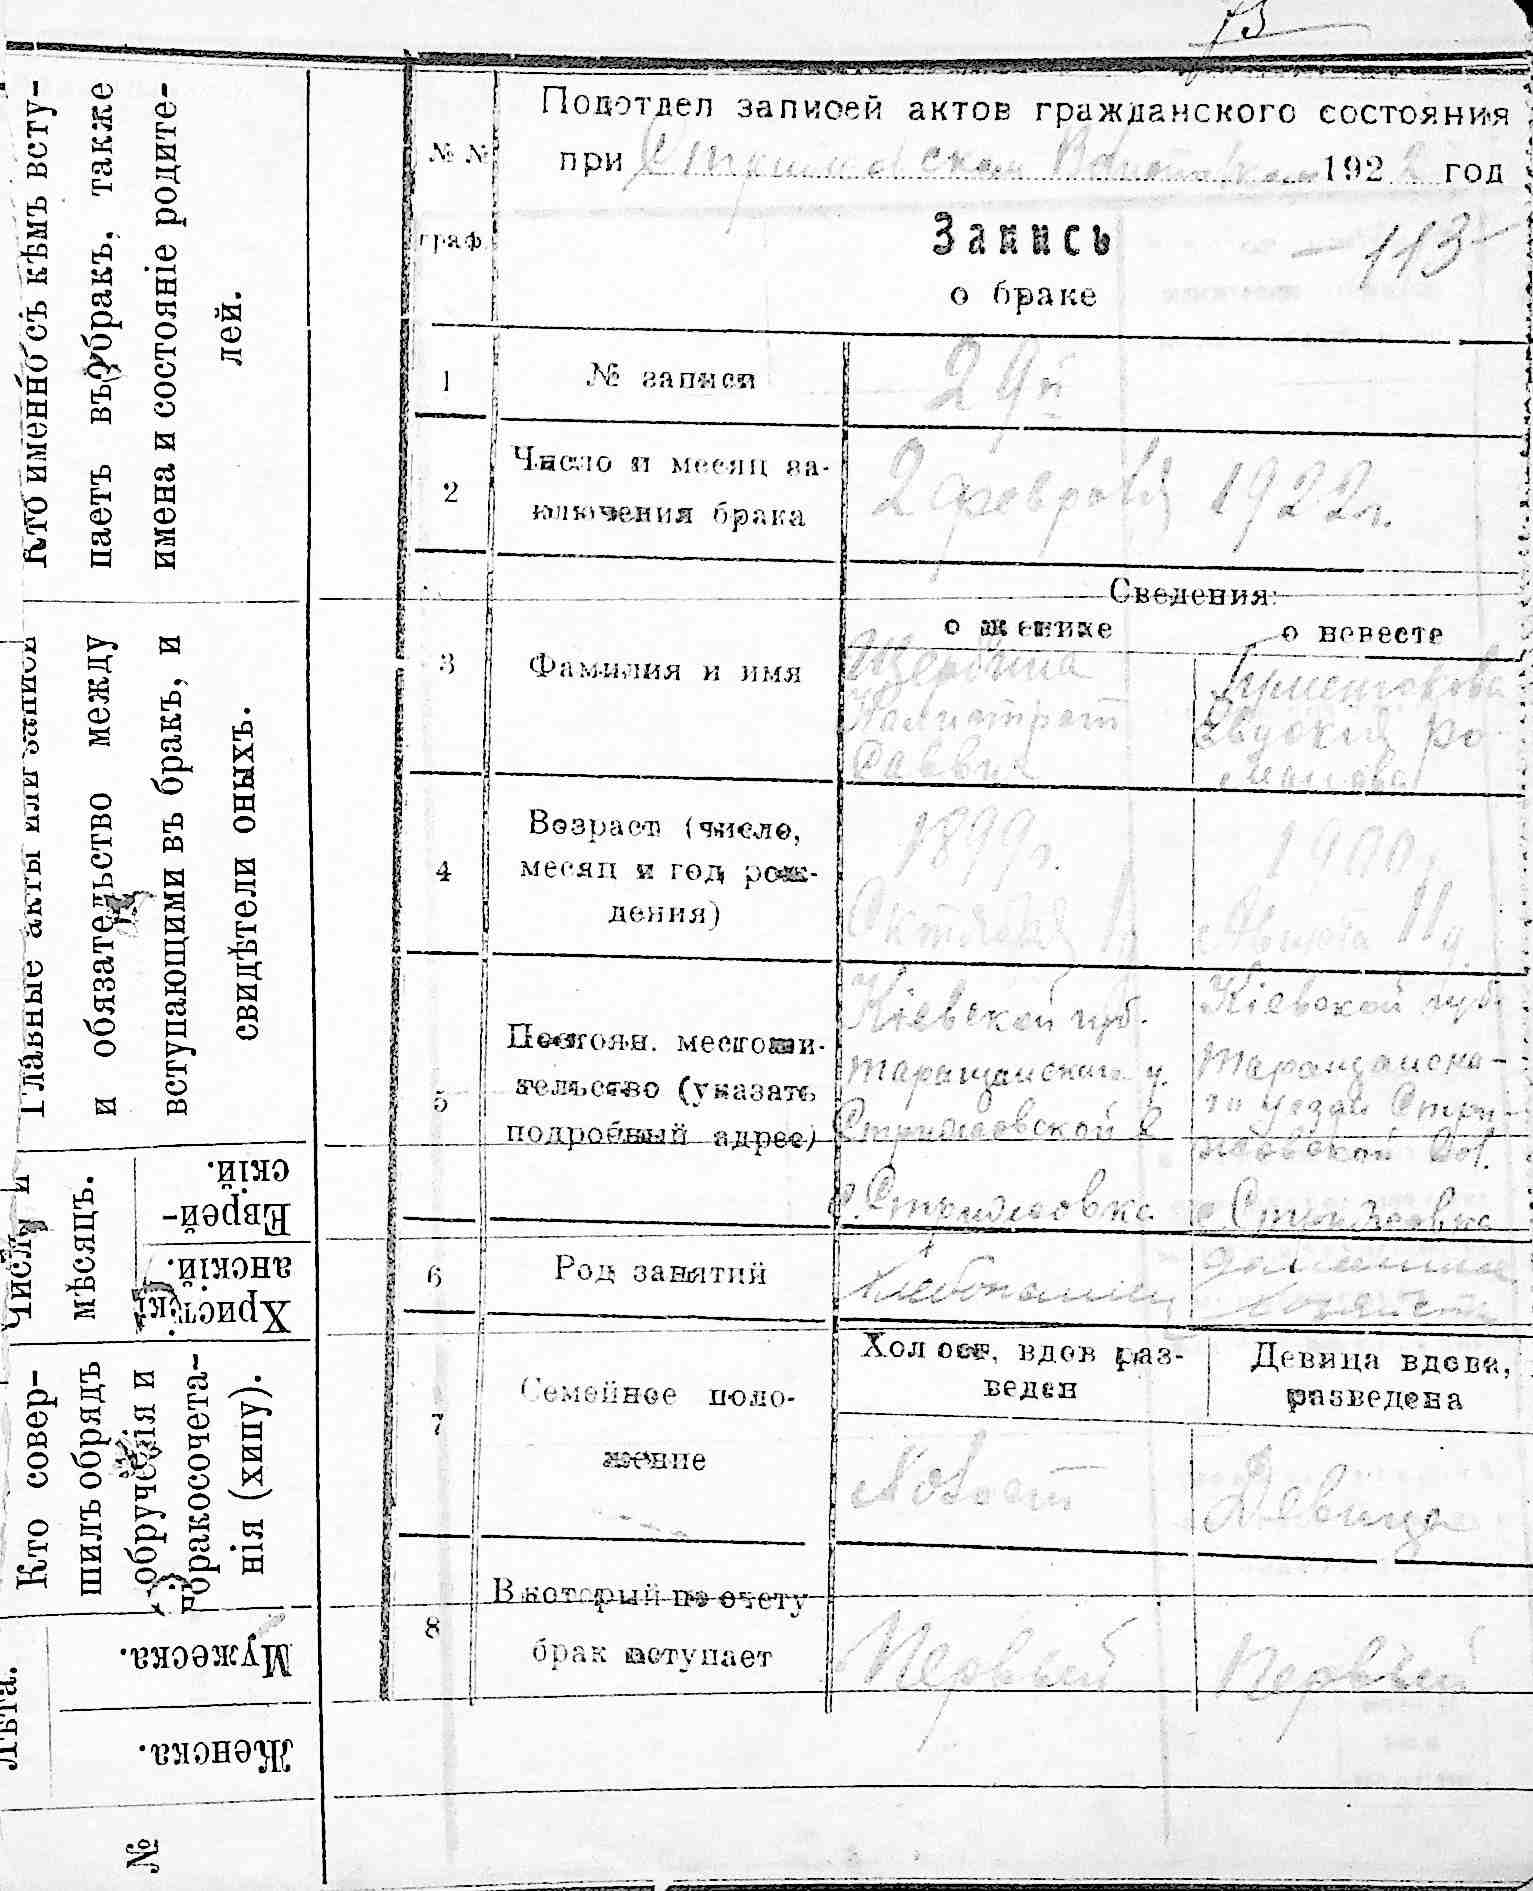 Подотдел записей актов гражданского состояния
при 1922 год
№ №
граф.
Запись
о браке
— 113 —
1 № записи 29й
2 Число и месяц за-
ключения брака
2 февраля 1922 г.
Сведения:
о женихе о невесте
3 Фамилия и имя
Щербина
Калистрат
Саввич
Евдокия Ро-
манова
4 Возраст (число,
месяц и год рож-
дения)
1899 г.
Октября
1900
Августа 11
5 Постоян. местожи-
тельство (указать
подробный адрес)
Кіевской губ.
Таращанскаго у.
Стрижевской в
с. Стрижевка
Кіевской губ.
Таращанска-
го уезда Стри-
жевской вол.
с Стрижевка
6 Род занятий
хлебопашец
домашнее
хозяйство
7 Семейное поло-
жение
Холост, вдов раз-
веден
Девица вдова,
разведена
Холост Девица
8 В который по счету
брак вступает
Первый Первый
Кто именно съ кѣмъ всту-
паетъ въ бракъ, также
имена и состояніе родите-
лей.
Главные акты или записи
и обязательство между
вступающими въ бракъ, и
свидѣтели оныхъ.
Число и
мѣсяцъ.
Еврей-
скій.
Христі-
анскій.
Кто совер-
шилъ обрядъ
обрученія и
бракосочета-
нія (хипу).
Лѣта.
Мужеска.
Женска.
№